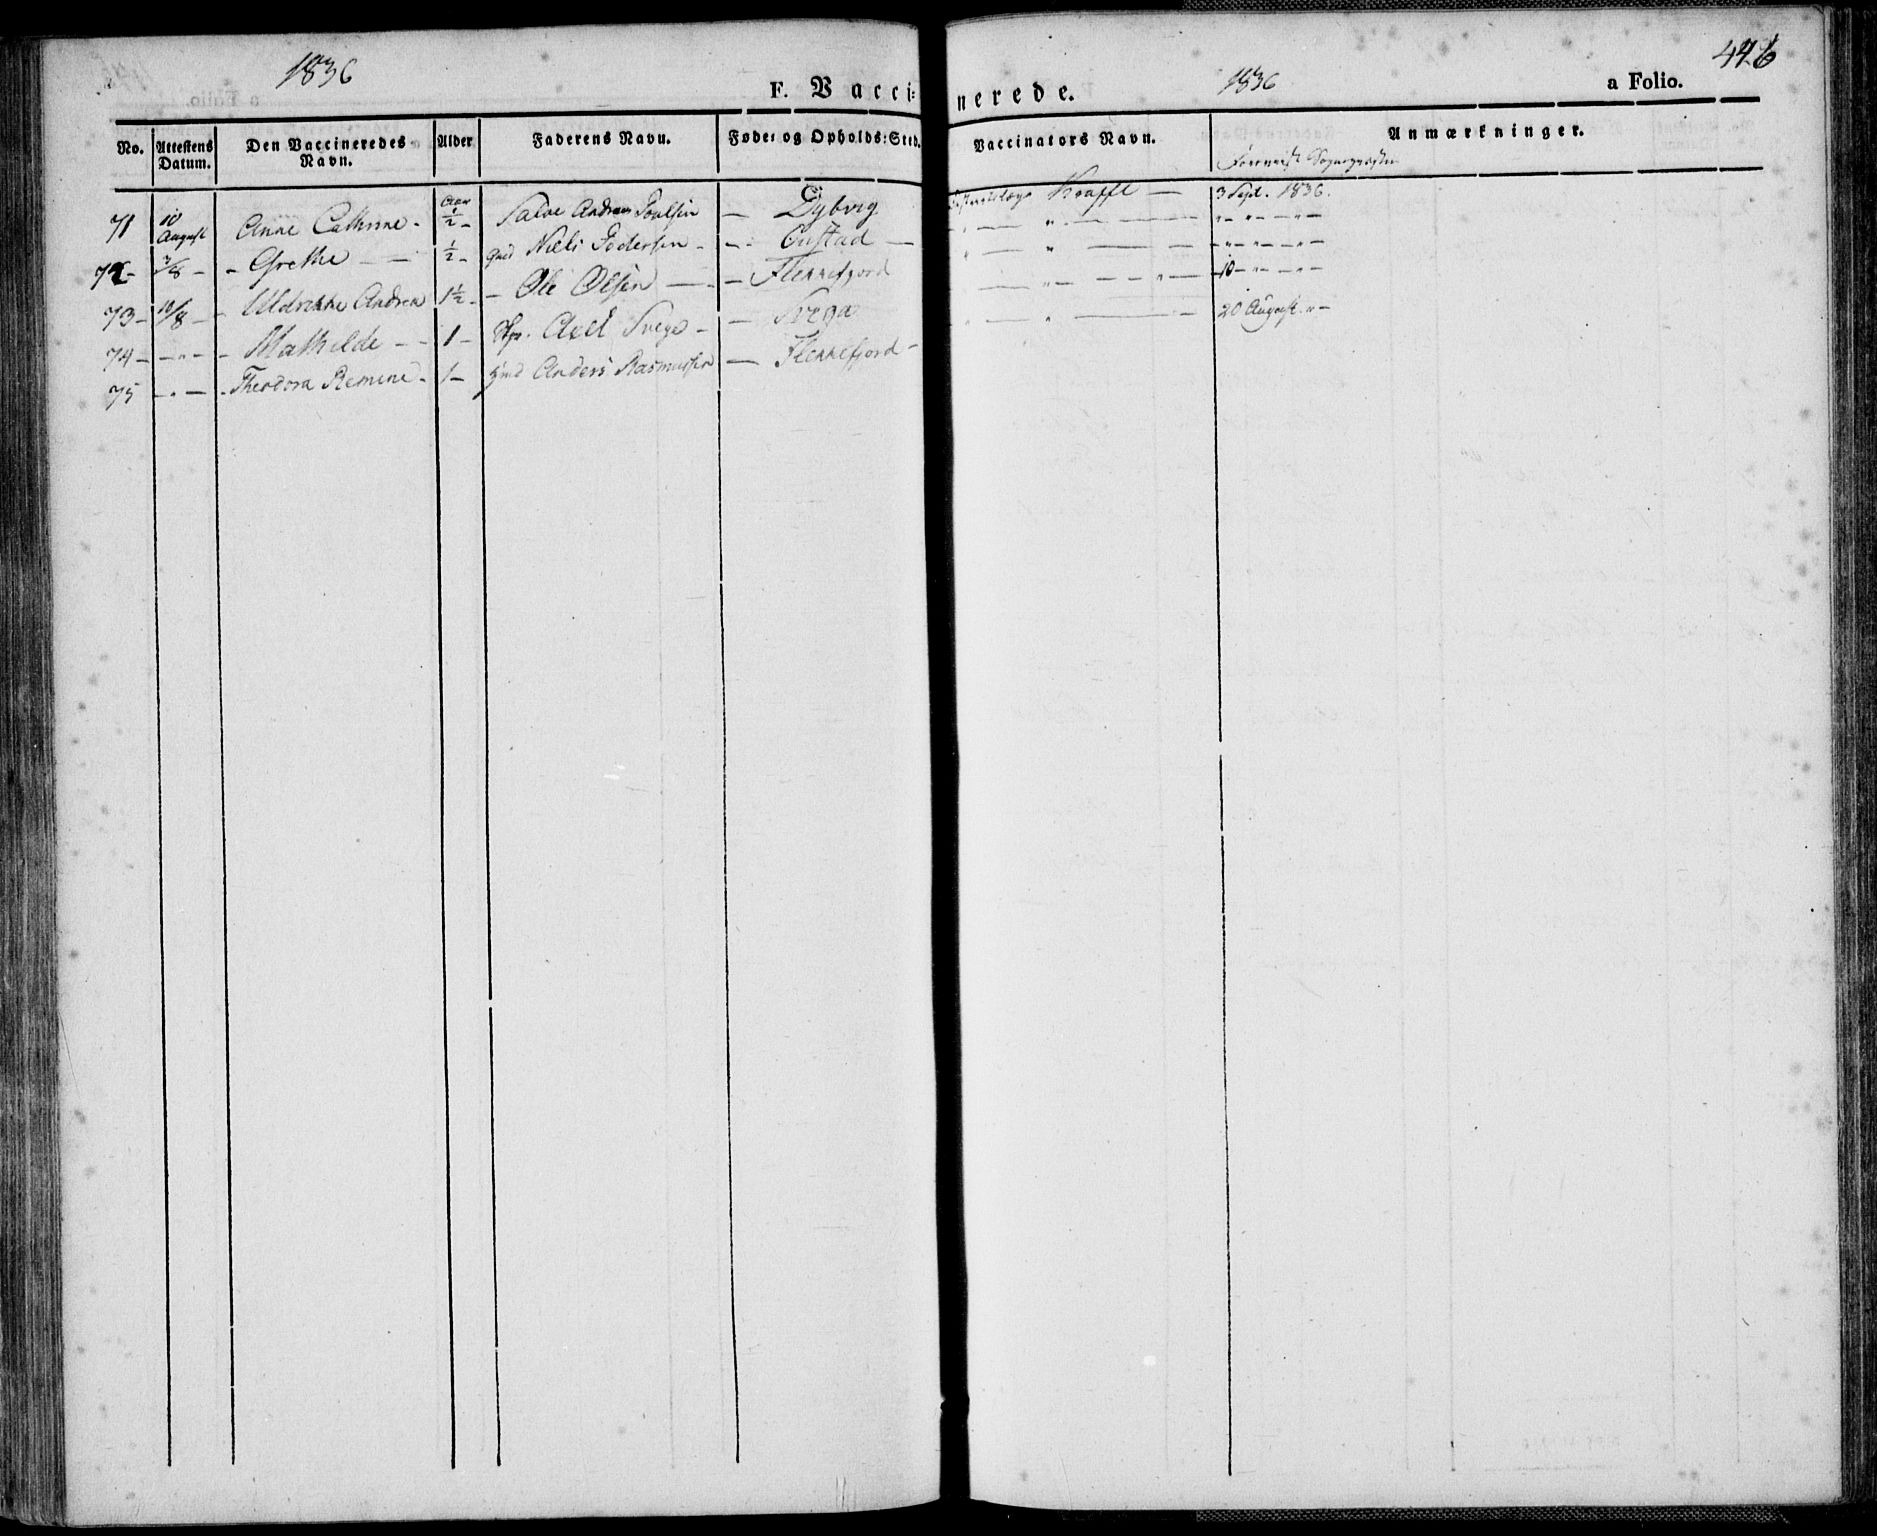 1836
F. Vacci=
nerede.
1836
a Folio.
446
No. Attestens Datum. Den Vaccineredes Navn. Alder Faderens Navn. Føde= og Opholds=Sted. Vaccinators Navn. Anmærkninger.
71 10 August Anne Cathrine - Aar ½ - Salve Andreas Poulsen — Dybvig Krafft — 3 Sept. 1836.
72 - 7/8 - - Grethe — — ½ - Niels Pedersen - - Gustad — " — " — " - " —
73 - 10/8 - - Uldrikke Andrea 1½ - - Ole Olsen — - — Flekkefjord — " — " — " - " —
74 - - " - - Mathilde - - 1 - Axel Svege - — Svega — " — 10 - " — "
75 - " - - Theodora Remine - 1 - Anders Rasmussen — Flekkefjord - — " — 20 August. " -